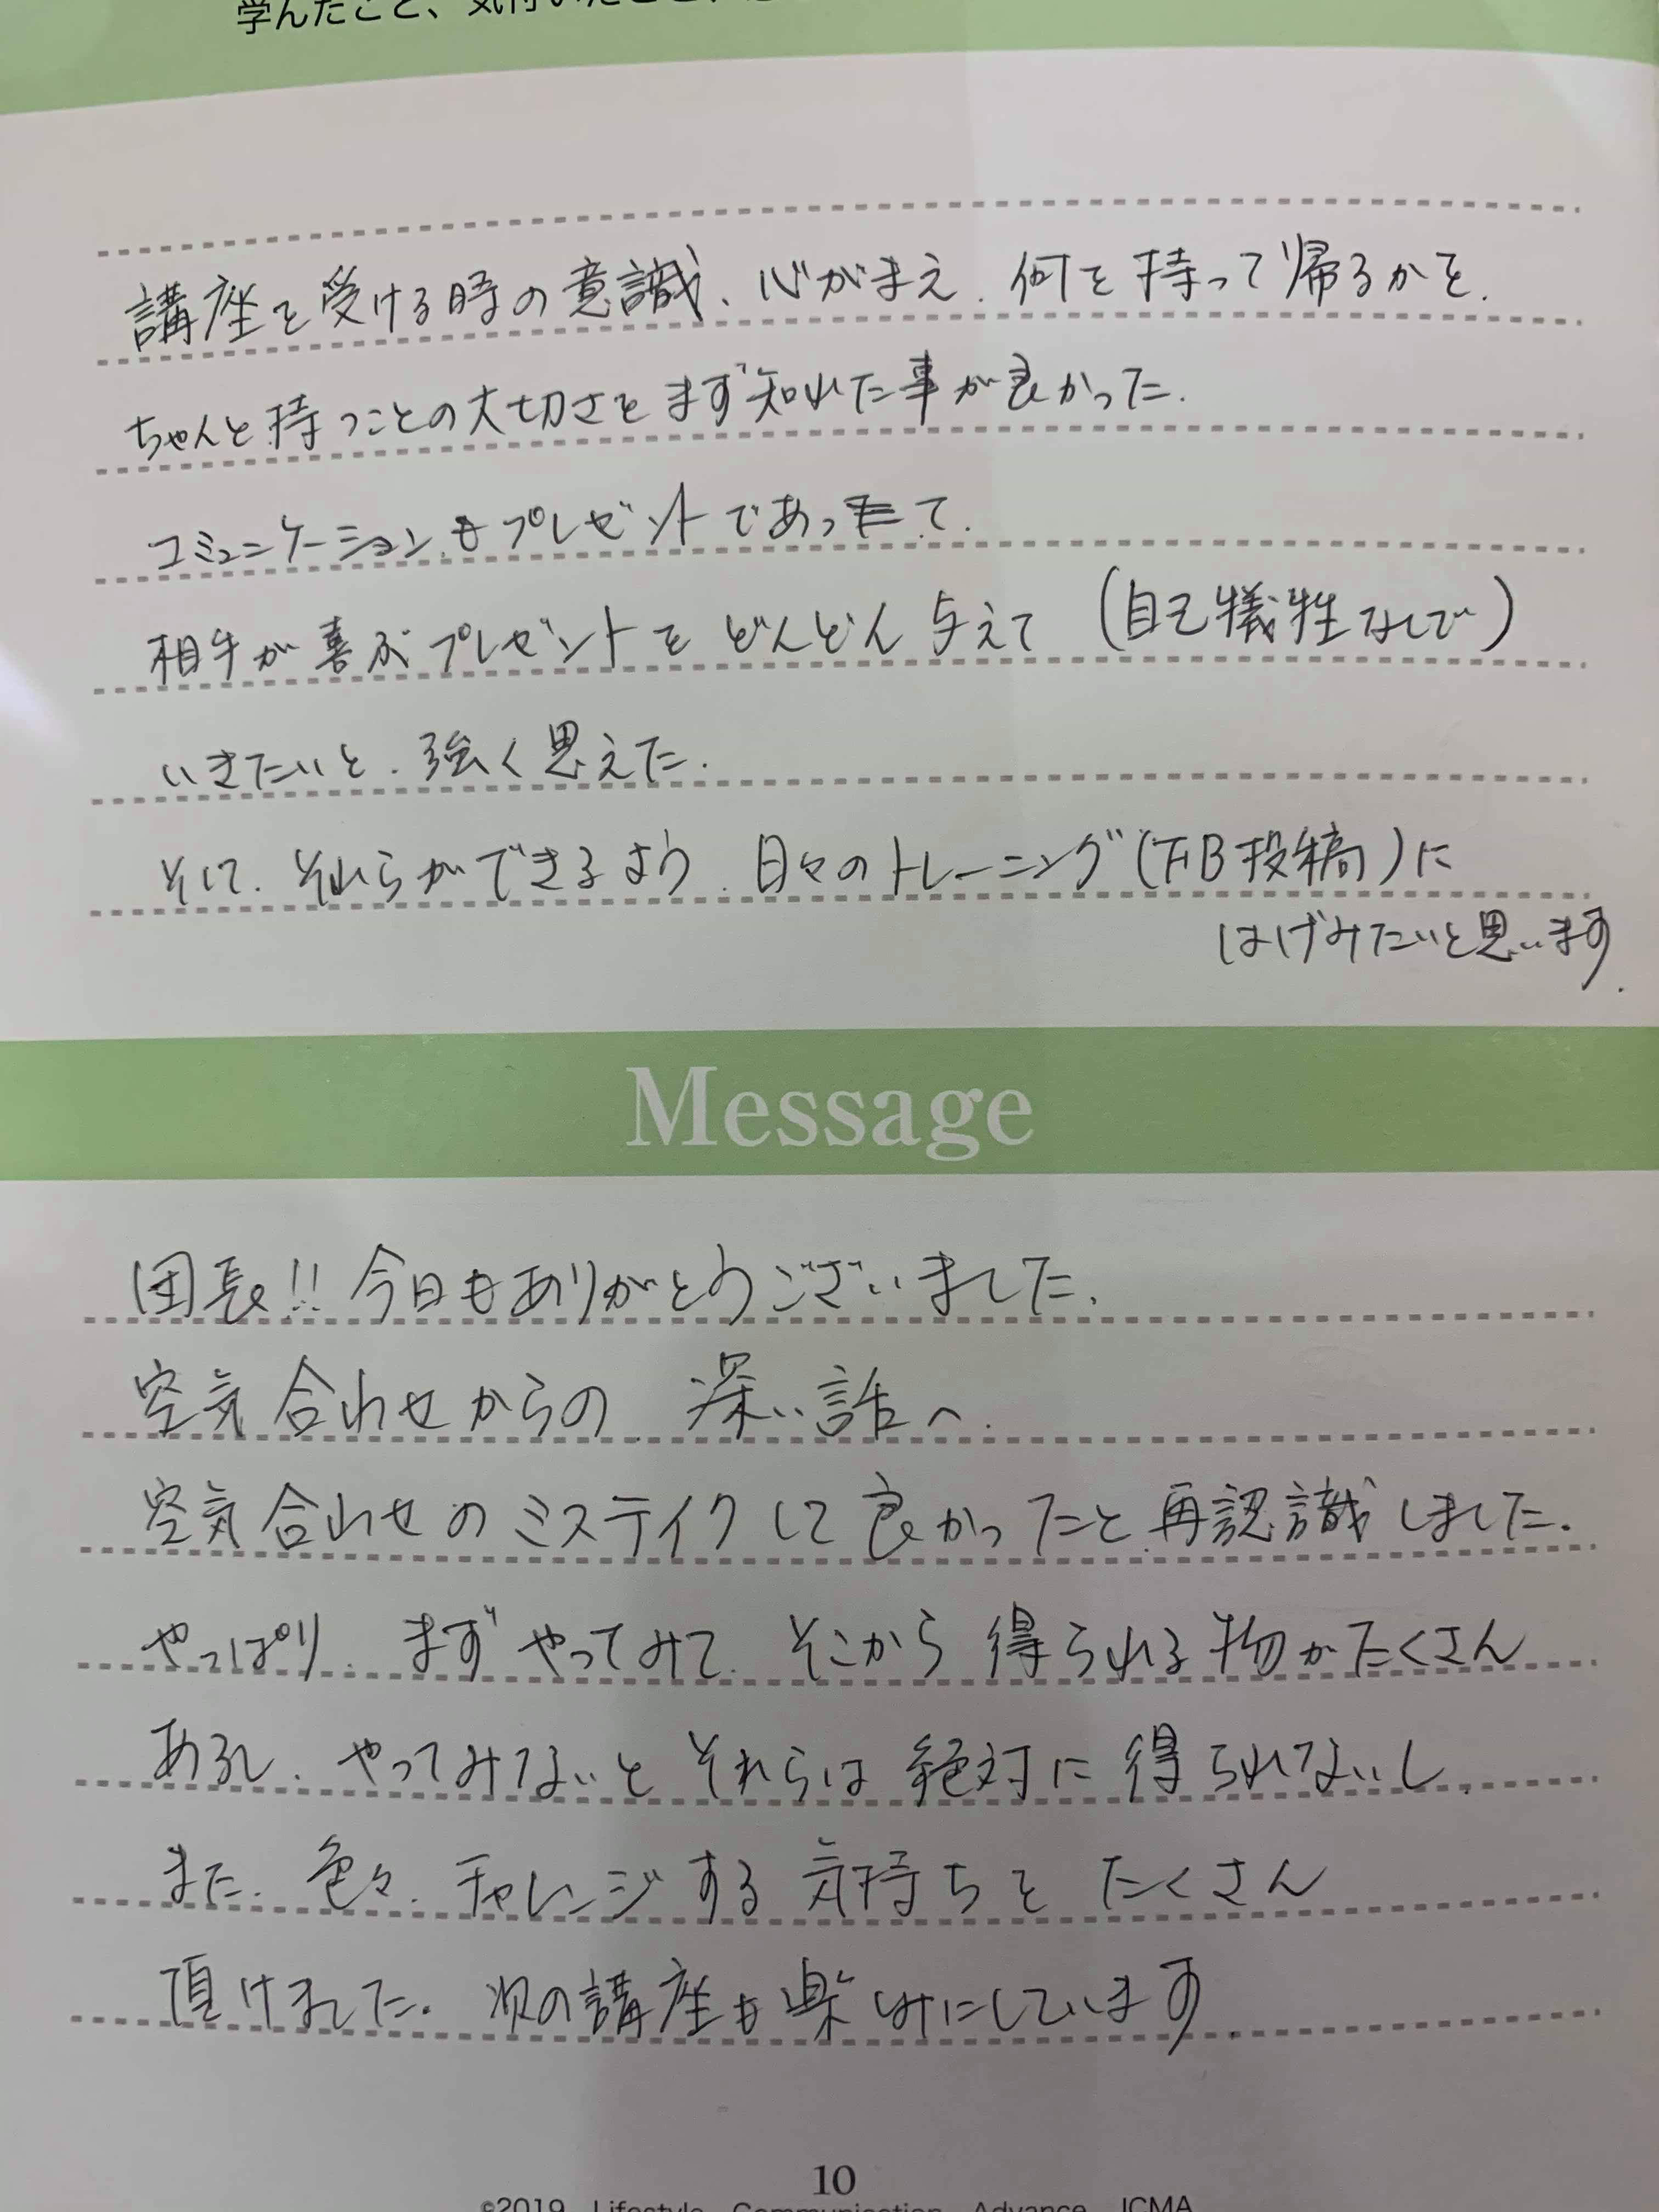 学んだこと、気付いたこと、
講座を受ける時の意識、心がまえ、何を持って帰るかを、
ちゃんと持つことの大切さをまず知れた事が良かった。
コミュニケーションもプレゼントであって、
相手が喜ぶプレゼントをどんどん与えて(自己犠牲なしで)
いきたいと、強く思えた。
そして、それらができるよう、日々のトレーニング(FB投稿)に
はげみたいと思います。
Message
団長!!今日もありがとうございました。
空気合わせからの、深い話へ。
空気合わせのミステイクして良かったと再認識しました。
やっぱり、まずやってみて、そこから得られる物がたくさん
あるし、やってみないとそれらは絶対に得られないし、
また、色々、チャレンジする気持ちをたくさん
頂けました。次の講座も楽しみにしています。
10
©2019 Lifestyle Communication Advance JCMA